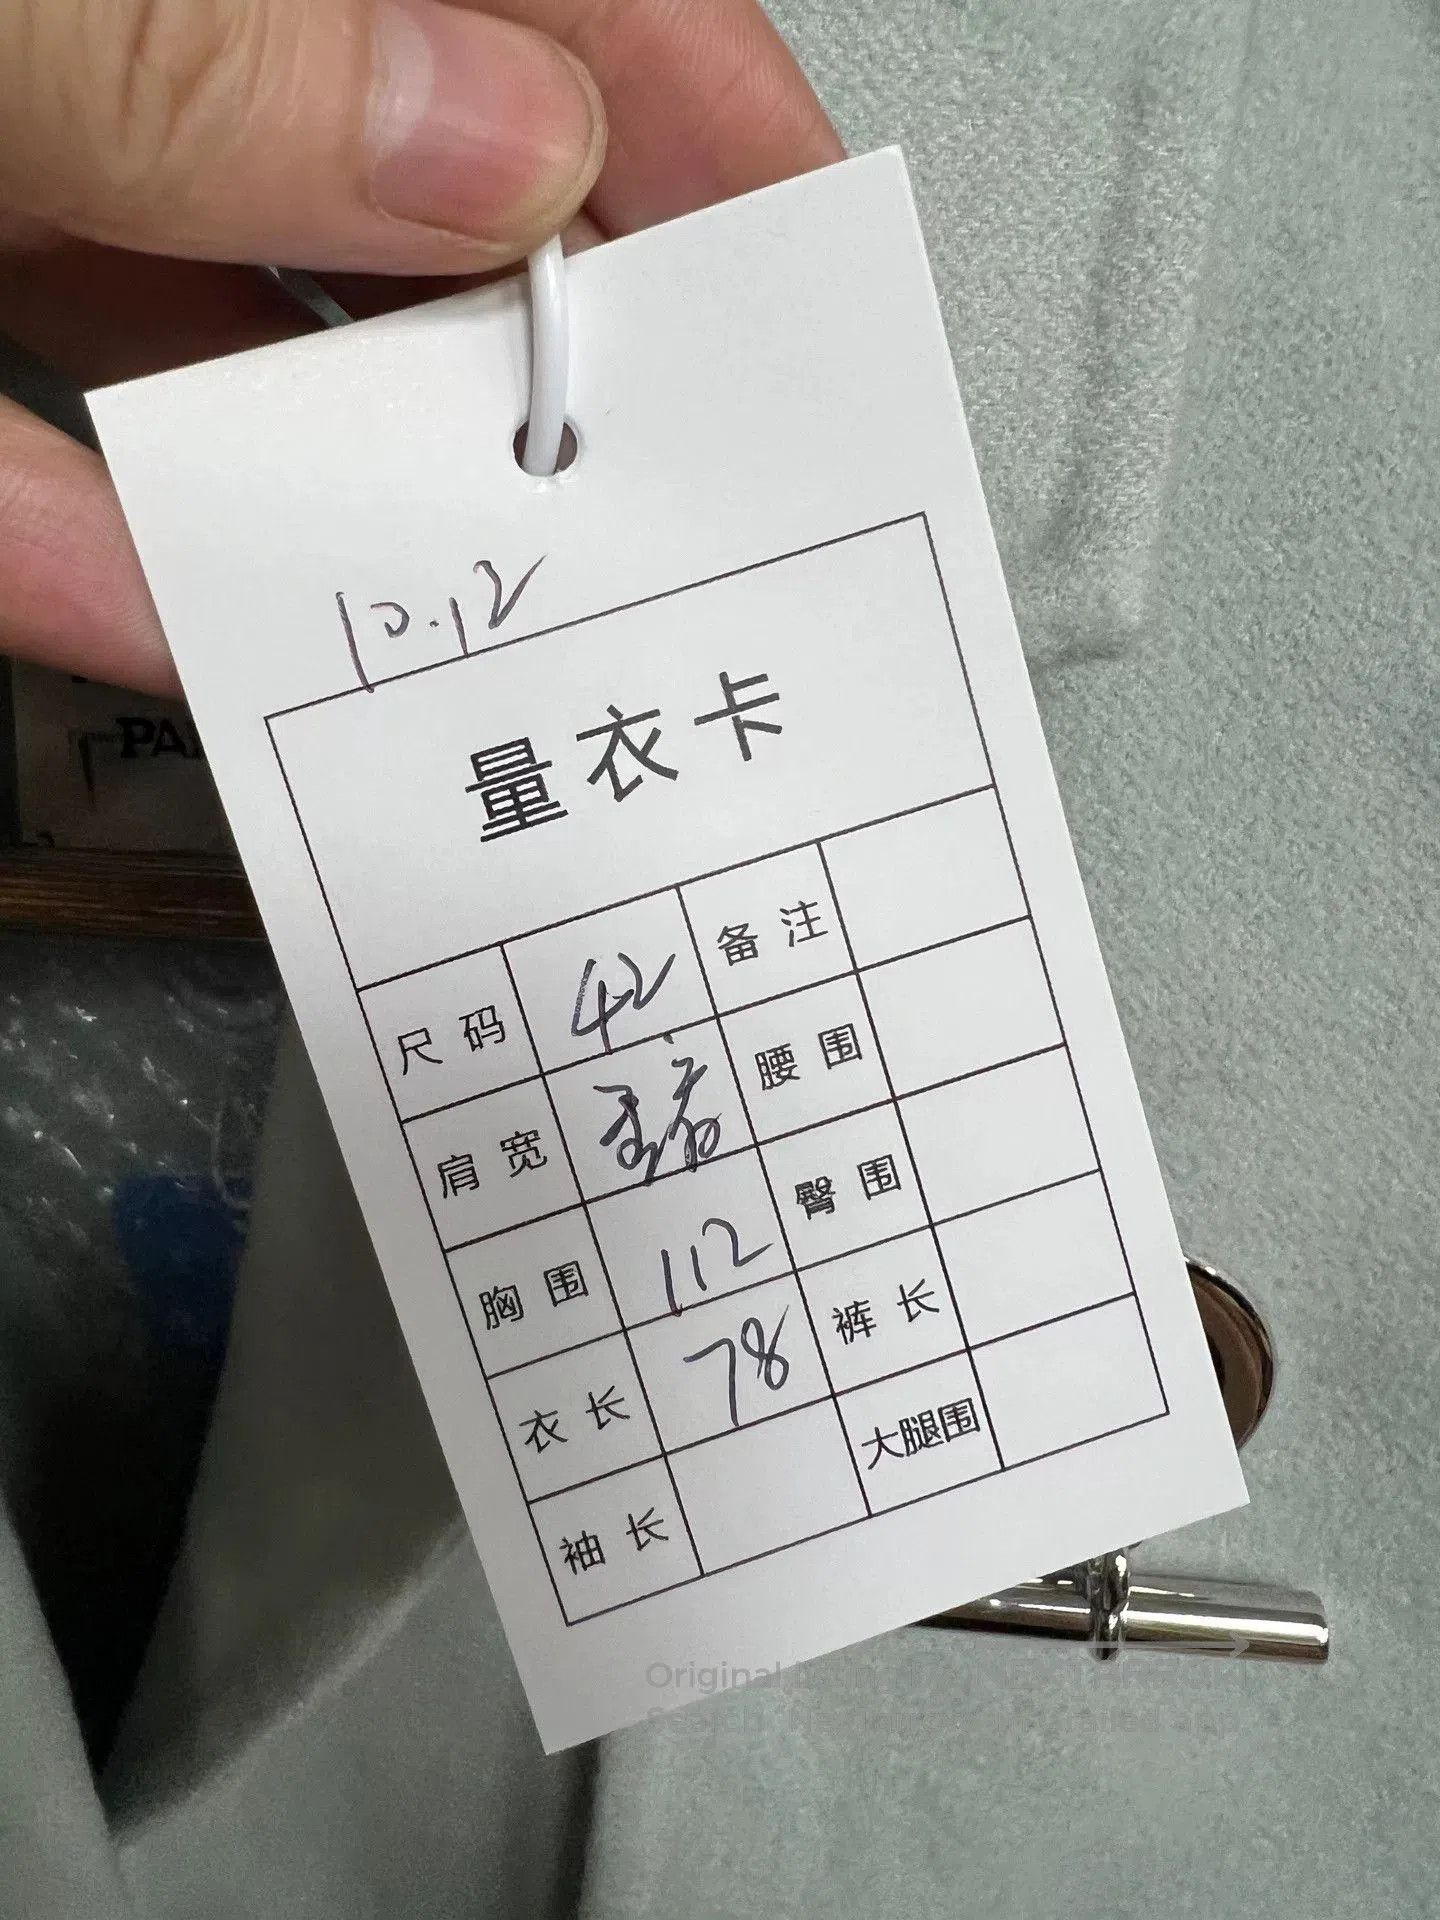 10.12
量衣卡
尺码 42 备注
肩宽 腰围
胸围 112 臀围
衣长 78 裤长
袖长 大腿围
PA
Original